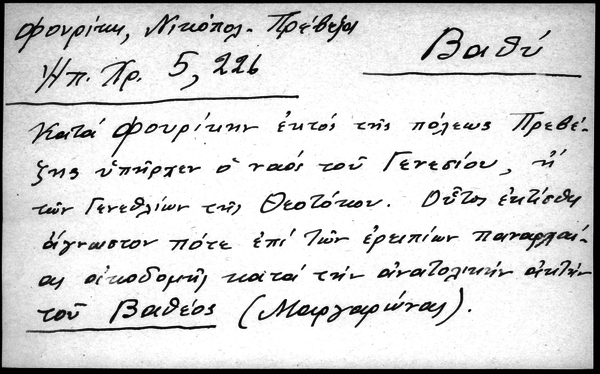 Φουρίκη, Νικόπολ. Πρέβεζα
Ἠπ. Χρ. 5, 226
Βαθύ
Κατά Φουρίκην ἐκτός τῆς πόλεως Πρεβέ-
ζης ὑπῆρχεν ὁ ναός τοῦ Γενεσίου, ἤ
τῶν Γενεθλίων τῆς Θεοτόκου. Οὗτος ἐκτίσθη
ἄγνωστον πότε ἐπί τῶν ἐρειπίων παναρχαί-
ας οἰκοδομῆς κατά τήν ἀνατολικήν ἀκτήν
τοῦ Βαθέος (Μαργαρώνας).